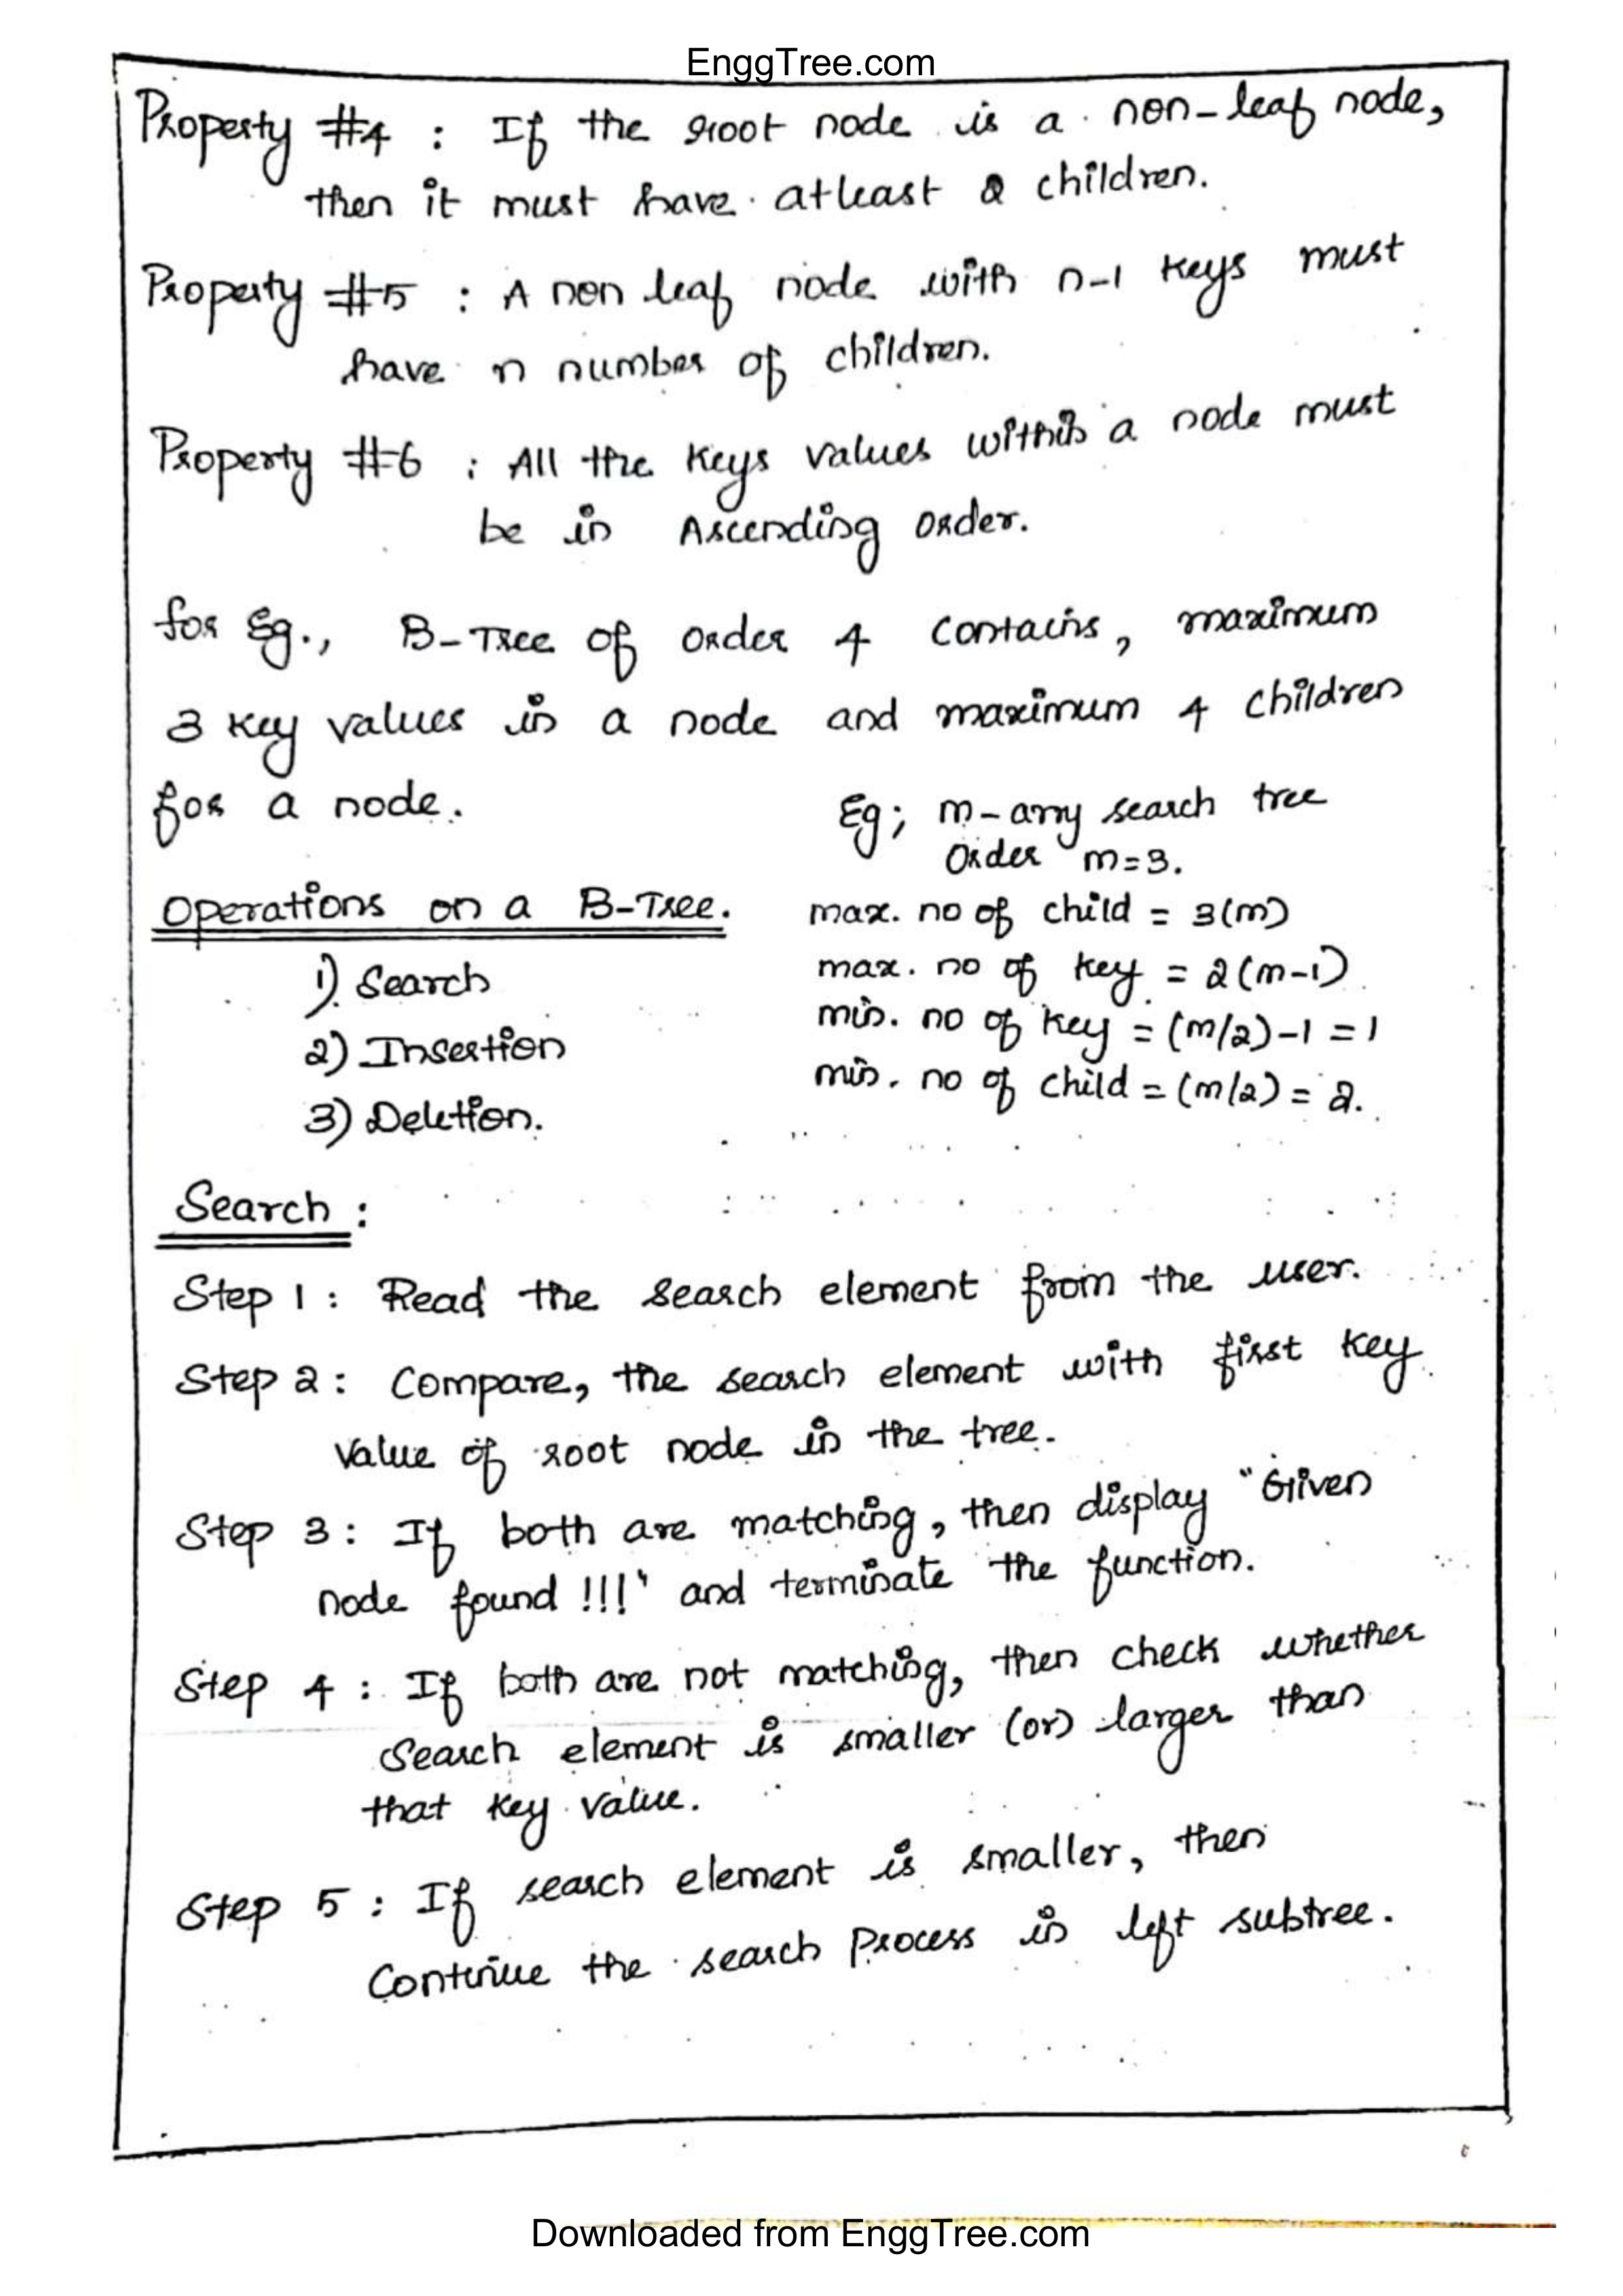 EnggTree.com
Property #4 : If the root node is a non-leaf node,
then it must have atleast 2 children.
Property #5 : A non leaf node with n-1 keys must
have n number of children.
Property #6 : All the keys values within a node must
be in Ascending order.
for Eg., B-Tree of order 4 contains, maximum
3 key values in a node and maximum 4 children
for a node.
Eg; m-arry search tree
Order m=3.
Operations on a B-Tree.
1) Search
2) Insertion
3) Deletion.
max. no of child = 3(m)
max. no of key = 2(m-1)
min. no of key = (m/2)-1 = 1
min. no of child = (m/2) = 2.
Search :
Step 1 : Read the search element from the user.
Step 2 : Compare, the search element with first key
value of root node in the tree.
Step 3 : If both are matching, then display "Given
node found !!!' and terminate the function.
Step 4 : If both are not matching, then check whether
Search element is smaller (or) larger than
that key value.
Step 5 : If search element is smaller, then
Continue the search process in left subtree.
Downloaded from EnggTree.com